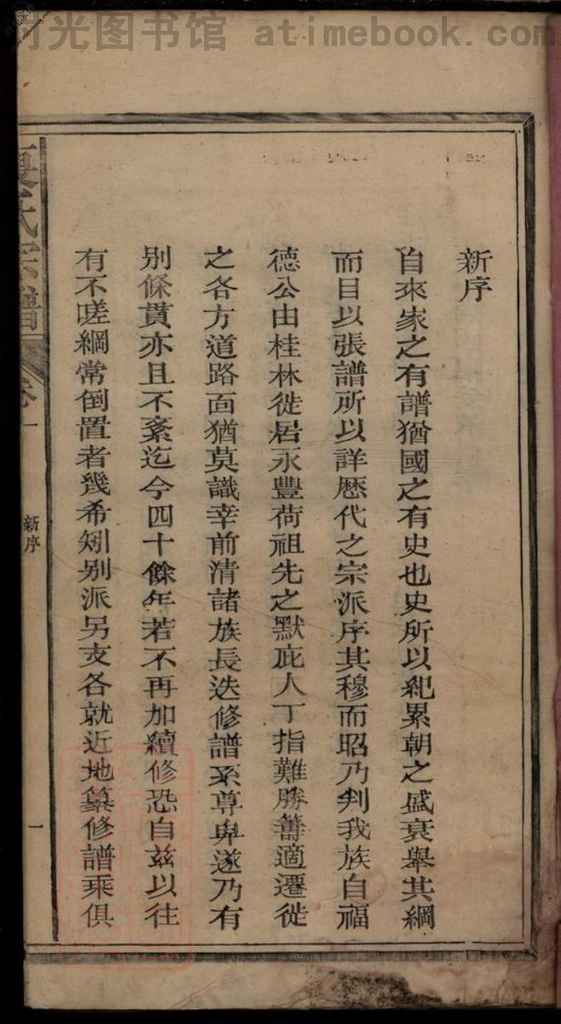 时光图书馆 atimebook.com
新序
自來家之有譜猶國之有史也史所以紀累朝之盛衰舉其綱
而目以張譜所以詳歷代之宗派序其穆而昭乃判我族自福
德公由桂林徙居永豐荷祖先之默庇人丁指難勝籌適遷徙
之各方道路面猶莫識幸前清諸族長迭修譜系尊卑遂乃有
別條貫亦且不紊迄今四十餘年若不再加續修恐自兹以往
有不嗟綱常倒置者幾希矧别派另支各就近地纂修譜乘俱
氏宗譜
卷一
新序
一